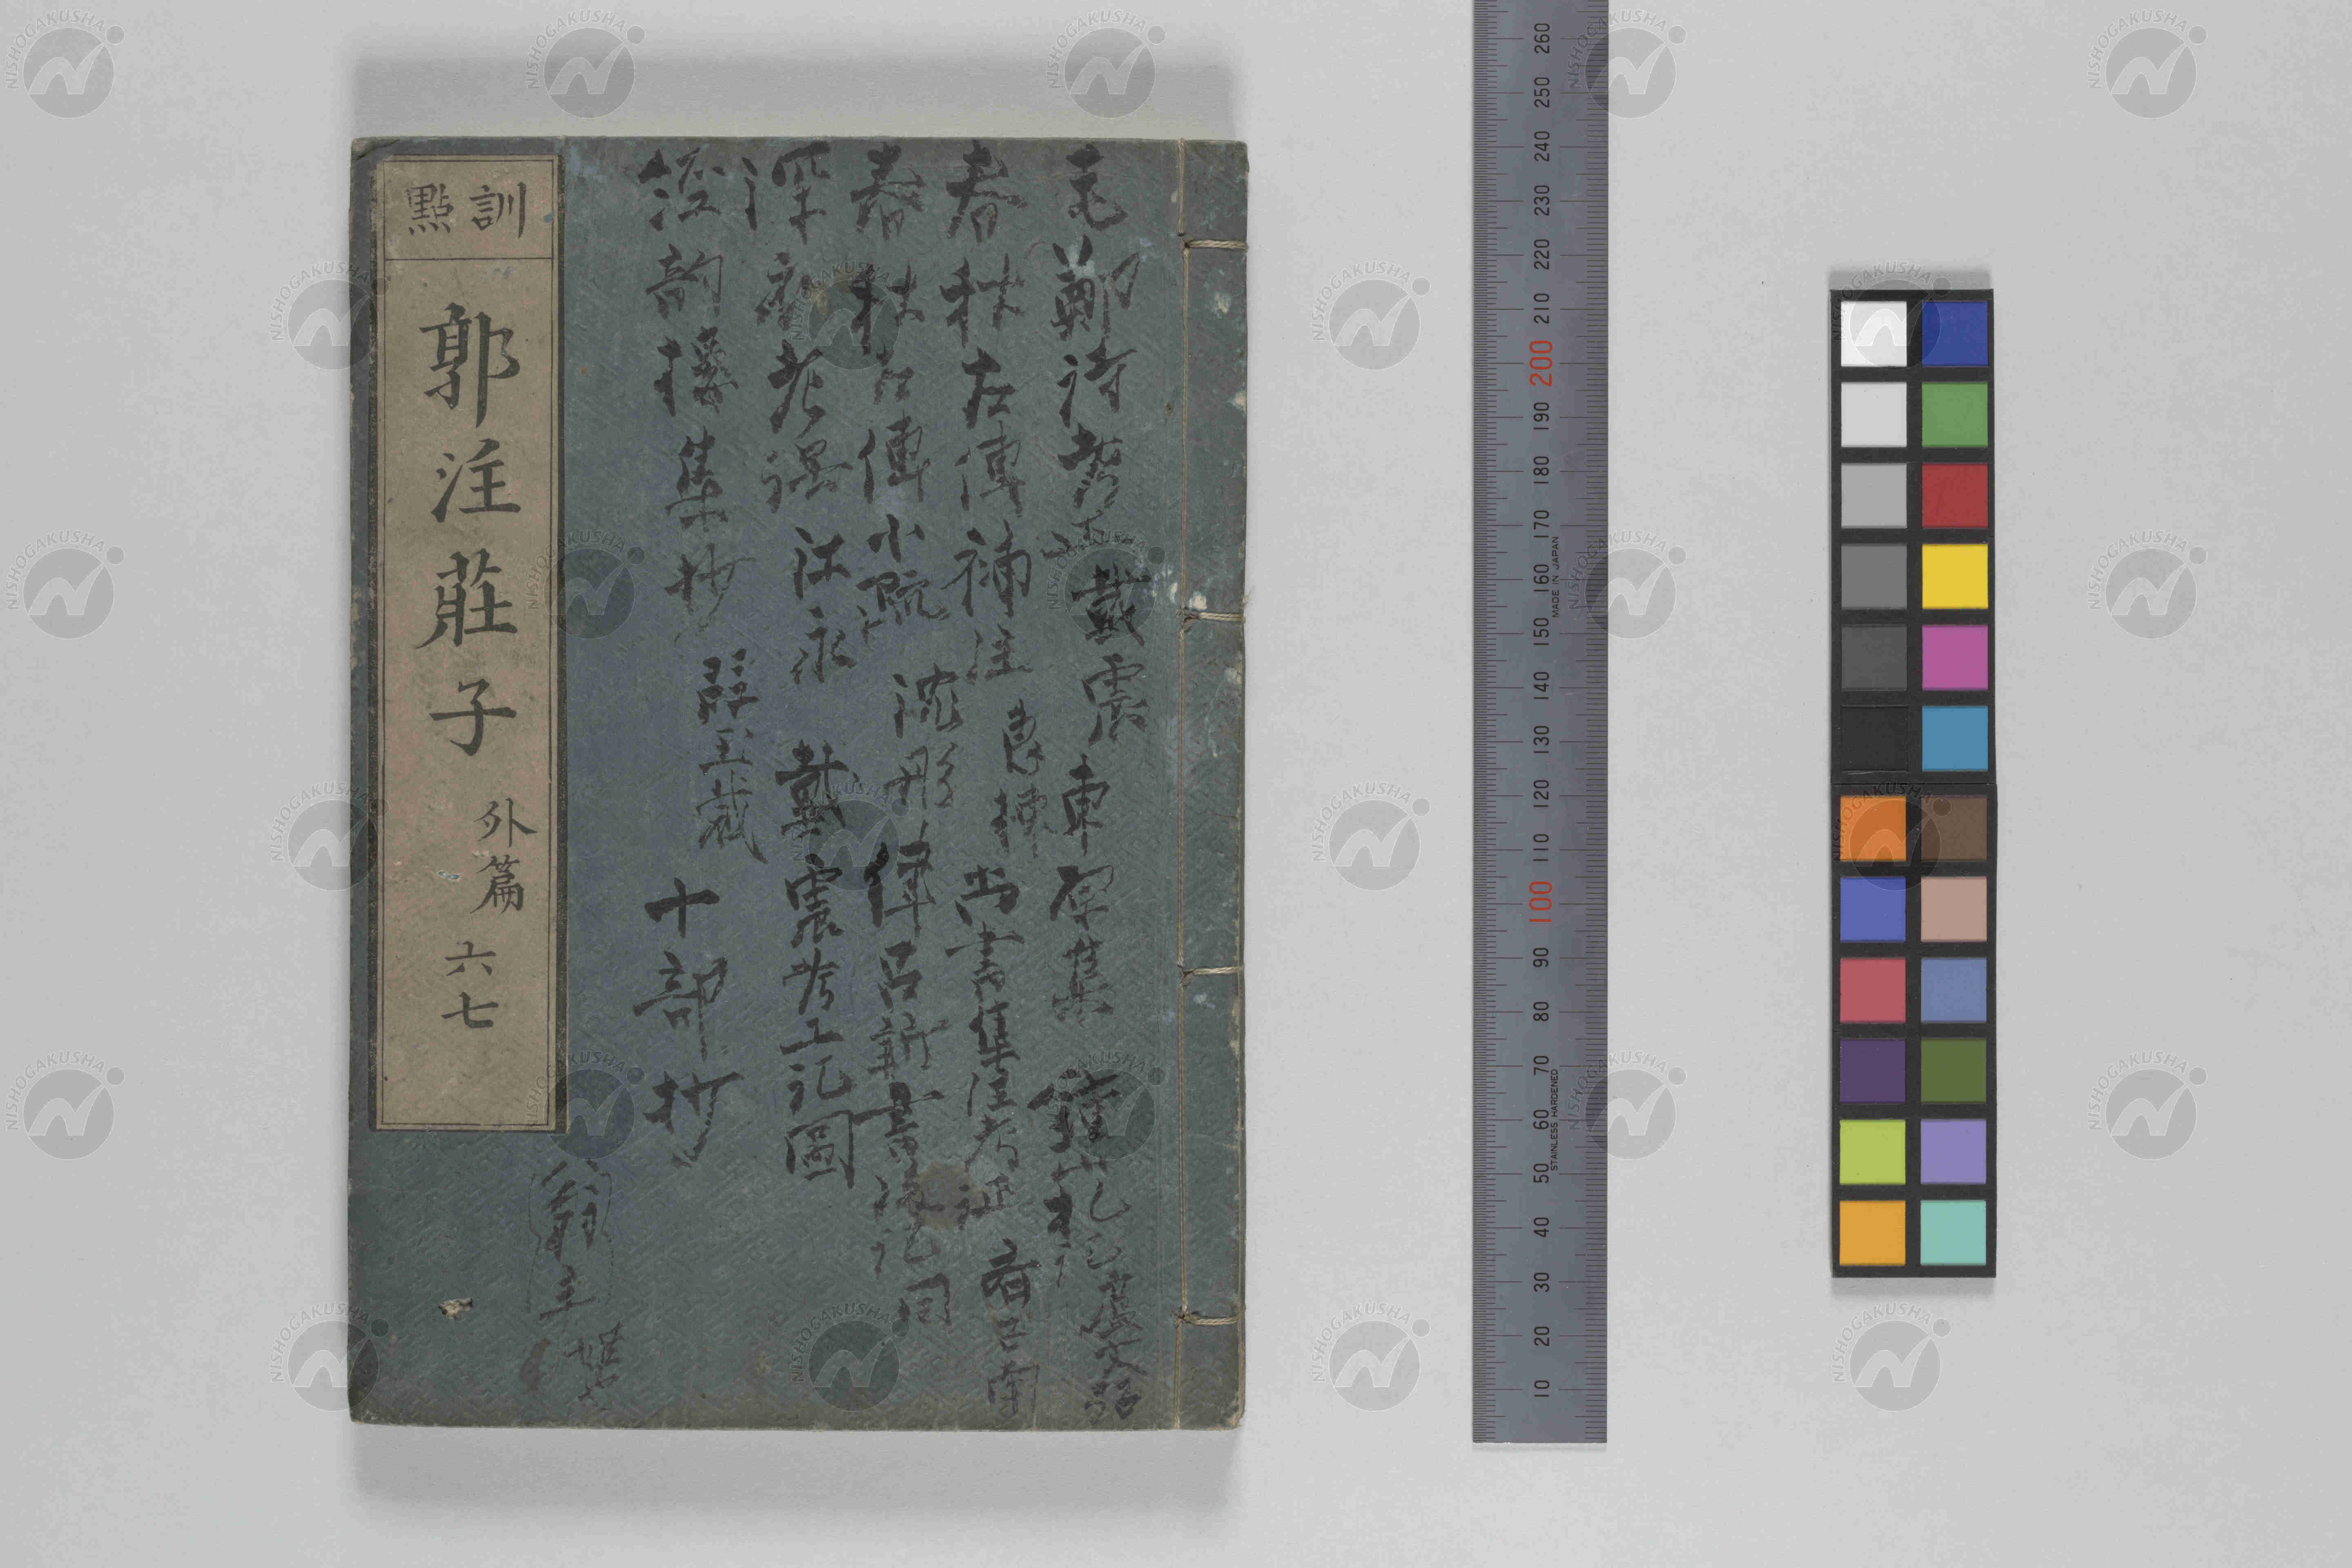 毛鄭詩考正 戴震 東原集 鍾山札記 盧文弨
春秋左傳補注 惠棟 尚書集注考证
春秋左傳小疏 沈彤 儀呂新書 同
深衣考误 江永 戴震考工記圖
經韵樓集抄 段玉裁 十部抄
訓點
郭注莊子 外篇 六七
260
250
240
230
220
210
200
190
180
170
160
150
140
130
120
110
100
90
80
70
60
50
40
30
20
10
MADE IN JAPAN
STAINLESS HARDENED
NISHOGAKUSHA